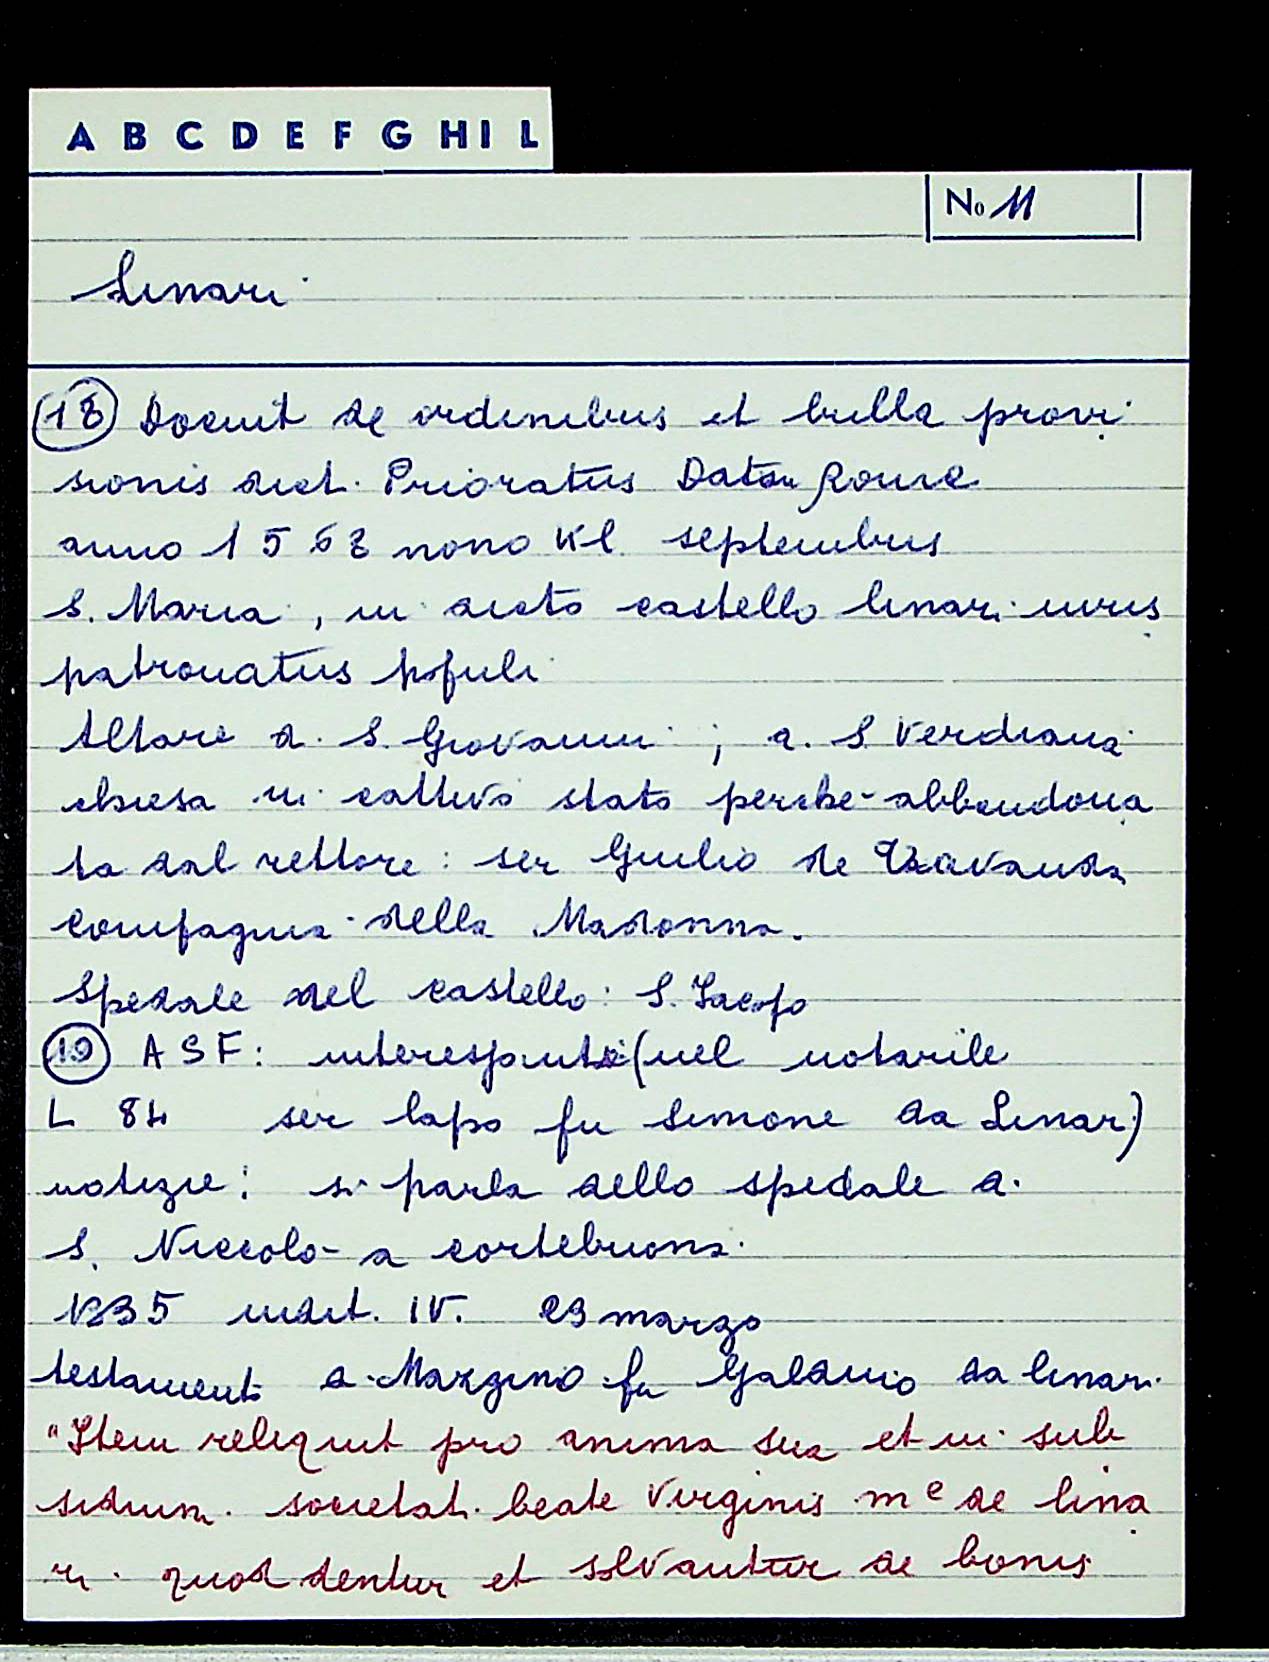 A B C D E F G H I L
No 11
Linari
18 Docuit de ordinibus et bulla provi
sionis dict. Prioratus Datu Rome
anno 1568 nono Kl septembris
S. Maria, in dicto castello linari iuris
patronatus populi
Altare a S. Giovanni; a. S. Verdiana
chiesa in cattivo stato perchè abbandona
ta dal rettore: ser Giulio de
compagnia della Madonna.
Spedale del castello: S. Jacopo
19 ASF: interessanti (nel notarile
L 84 ser lapo fu Simone da Linari)
notizie: si parla dello spedale a.
S. Niccolò a cortebuona
1335 indit. IV. 23 marzo
testamento a. Mazzino fu Galduio da linari
"Item reliquit pro anima sua et in sub
sidium societat. beate Virginis m e de lina
ri quod dentur et solvantur de bonis